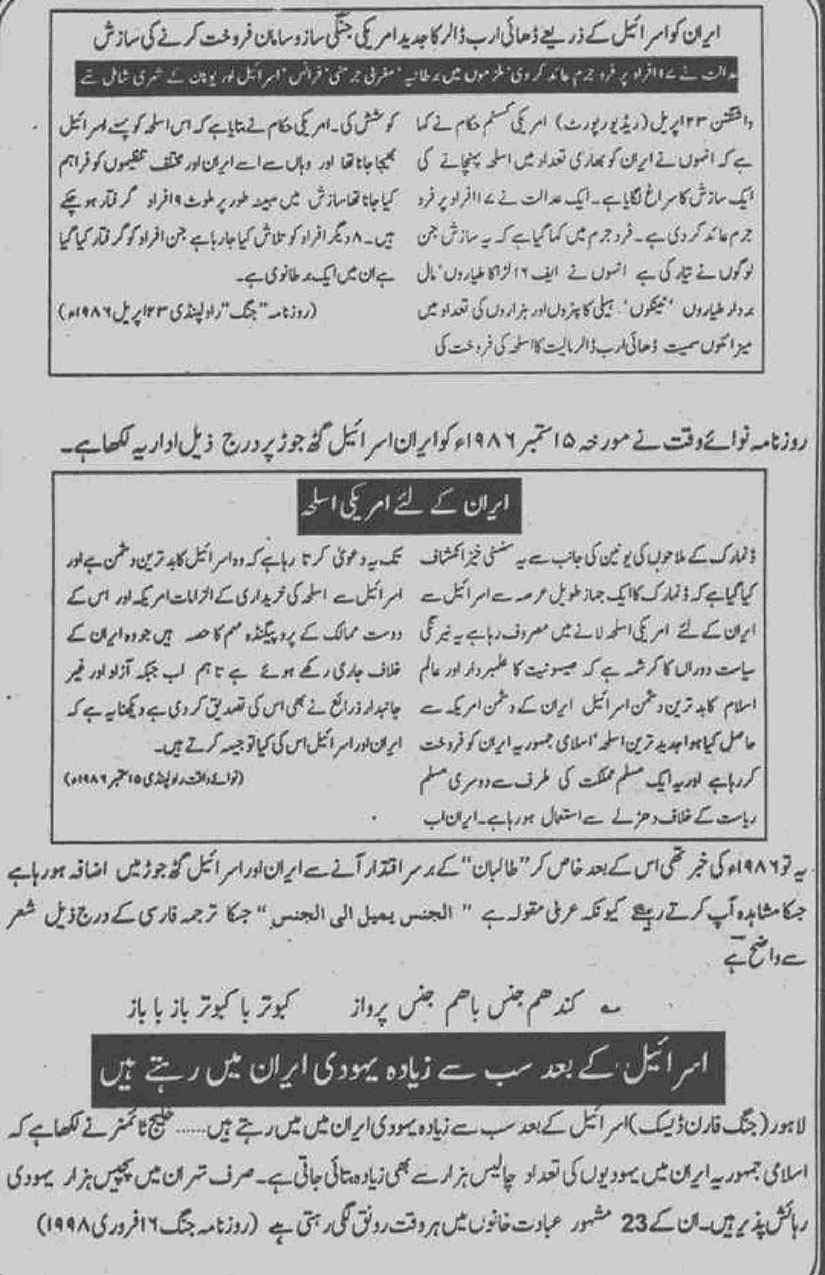 ایران کو اسرائیل کے ذریعے ڈھائی ارب ڈالر کا جدید امریکی جنگی ساز و سامان فروخت کرنے کی سازش
عدالت نے ۱۷ افراد پر فرد جرم عائد کر دی ' ملزموں میں برطانیہ ' مغربی جرمنی ' فرانس ' اسرائیل اور یونان کے شہری شامل تھے
واشنگٹن ۲۳ اپریل (ریڈیو رپورٹ) امریکی کسٹم حکام نے کہا
ہے کہ انہوں نے ایران کو بھاری تعداد میں اسلحہ پہنچانے کی
ایک سازش کا سراغ لگایا ہے۔ ایک عدالت نے ۱۷ افراد پر فرد
جرم عائد کر دی ہے۔ فرد جرم میں کہا گیا ہے کہ یہ سازش جن
لوگوں نے تیار کی ہے انہوں نے ایف ۱۶ لڑاکا طیاروں ' مال
بردار طیاروں ' ٹینکوں ' ہیلی کاپٹروں اور ہزاروں کی تعداد میں
میزائلوں سمیت ڈھائی ارب ڈالر مالیت کا اسلحہ کی فروخت کی
کوشش کی۔ امریکی حکام نے بتایا ہے کہ اس اسلحہ کو پہلے اسرائیل
بھیجا جانا تھا اور وہاں سے اسے ایران اور مختلف تنظیموں کو فراہم
کیا جانا تھا سازش میں مبینہ طور پر ملوث ۹ افراد گرفتار ہو چکے
ہیں۔ ۸ دیگر افراد کو تلاش کیا جا رہا ہے جن افراد کو گرفتار کیا گیا
ہے ان میں ایک برطانوی ہے۔
(روزنامہ "جنگ" راولپنڈی ۲۳ اپریل ۱۹۸۶ء)
روزنامہ نوائے وقت نے مورخہ ۱۵ ستمبر ۱۹۸۶ء کو ایران اسرائیل گٹھ جوڑ پر درج ذیل اداریہ لکھا ہے۔
ایران کے لئے امریکی اسلحہ
ڈنمارک کے ملاحوں کی یونین کی جانب سے یہ سنسنی خیز انکشاف
کیا گیا ہے کہ ڈنمارک کا ایک جہاز طویل عرصہ سے اسرائیل سے
ایران کے لئے امریکی اسلحہ لانے میں مصروف رہا ہے یہ نیرنگی
سیاست دوراں کا کرشمہ ہے کہ صیہونیت کا علمبردار اور عالم
اسلام کا بدترین دشمن اسرائیل ایران کے دشمن امریکہ سے
حاصل کیا ہوا جدید ترین اسلحہ ' اسلامی جمہوریہ ایران کو فروخت
کر رہا ہے اور یہ ایک مسلم مملکت کی طرف سے دوسری مسلم
ریاست کے خلاف دھڑلے سے استعمال ہو رہا ہے۔ ایران اب
تک یہ دعویٰ کرتا رہا ہے کہ وہ اسرائیل کا بدترین دشمن ہے اور
اسرائیل سے اسلحہ کی خریداری کے الزامات امریکہ اور اس کے
دوست ممالک کے پروپیگنڈہ مہم کا حصہ ہیں جو وہ ایران کے
خلاف جاری رکھے ہوئے ہے تاہم اب جبکہ آزاد اور غیر
جانبدار ذرائع نے بھی اس کی تصدیق کر دی ہے دیکھنا یہ ہے کہ
ایران اور اسرائیل اس کی کیا توجیہہ کرتے ہیں۔
(نوائے وقت راولپنڈی ۱۵ ستمبر ۱۹۸۶ء)
یہ تو ۱۹۸۶ء کی خبر تھی اس کے بعد خاص کر "طالبان" کے برسر اقتدار آنے سے ایران اور اسرائیل گٹھ جوڑ میں اضافہ ہو رہا ہے
جسکا مشاہدہ آپ کرتے رہیئے کیونکہ عربی مقولہ ہے " الجنس یمیل الی الجنس " جسکا ترجمہ فارسی کے درج ذیل شعر
سے واضح ہے
کند ھم جنس باھم جنس پرواز کبوتر با کبوتر باز با باز
اسرائیل کے بعد سب سے زیادہ یہودی ایران میں رہتے ہیں
لاہور (جنگ فارن ڈیسک) اسرائیل کے بعد سب سے زیادہ یہودی ایران میں میں رہتے ہیں...... خلیج ٹائمز نے لکھا ہے کہ
اسلامی جمہوریہ ایران میں یہودیوں کی تعداد چالیس ہزار سے بھی زیادہ بتائی جاتی ہے۔ صرف تہران میں پچیس ہزار یہودی
رہائش پذیر ہیں۔ ان کے 23 مشہور عبادت خانوں میں ہر وقت رونق لگی رہتی ہے (روزنامہ جنگ ۱۶ فروری ۱۹۹۸)